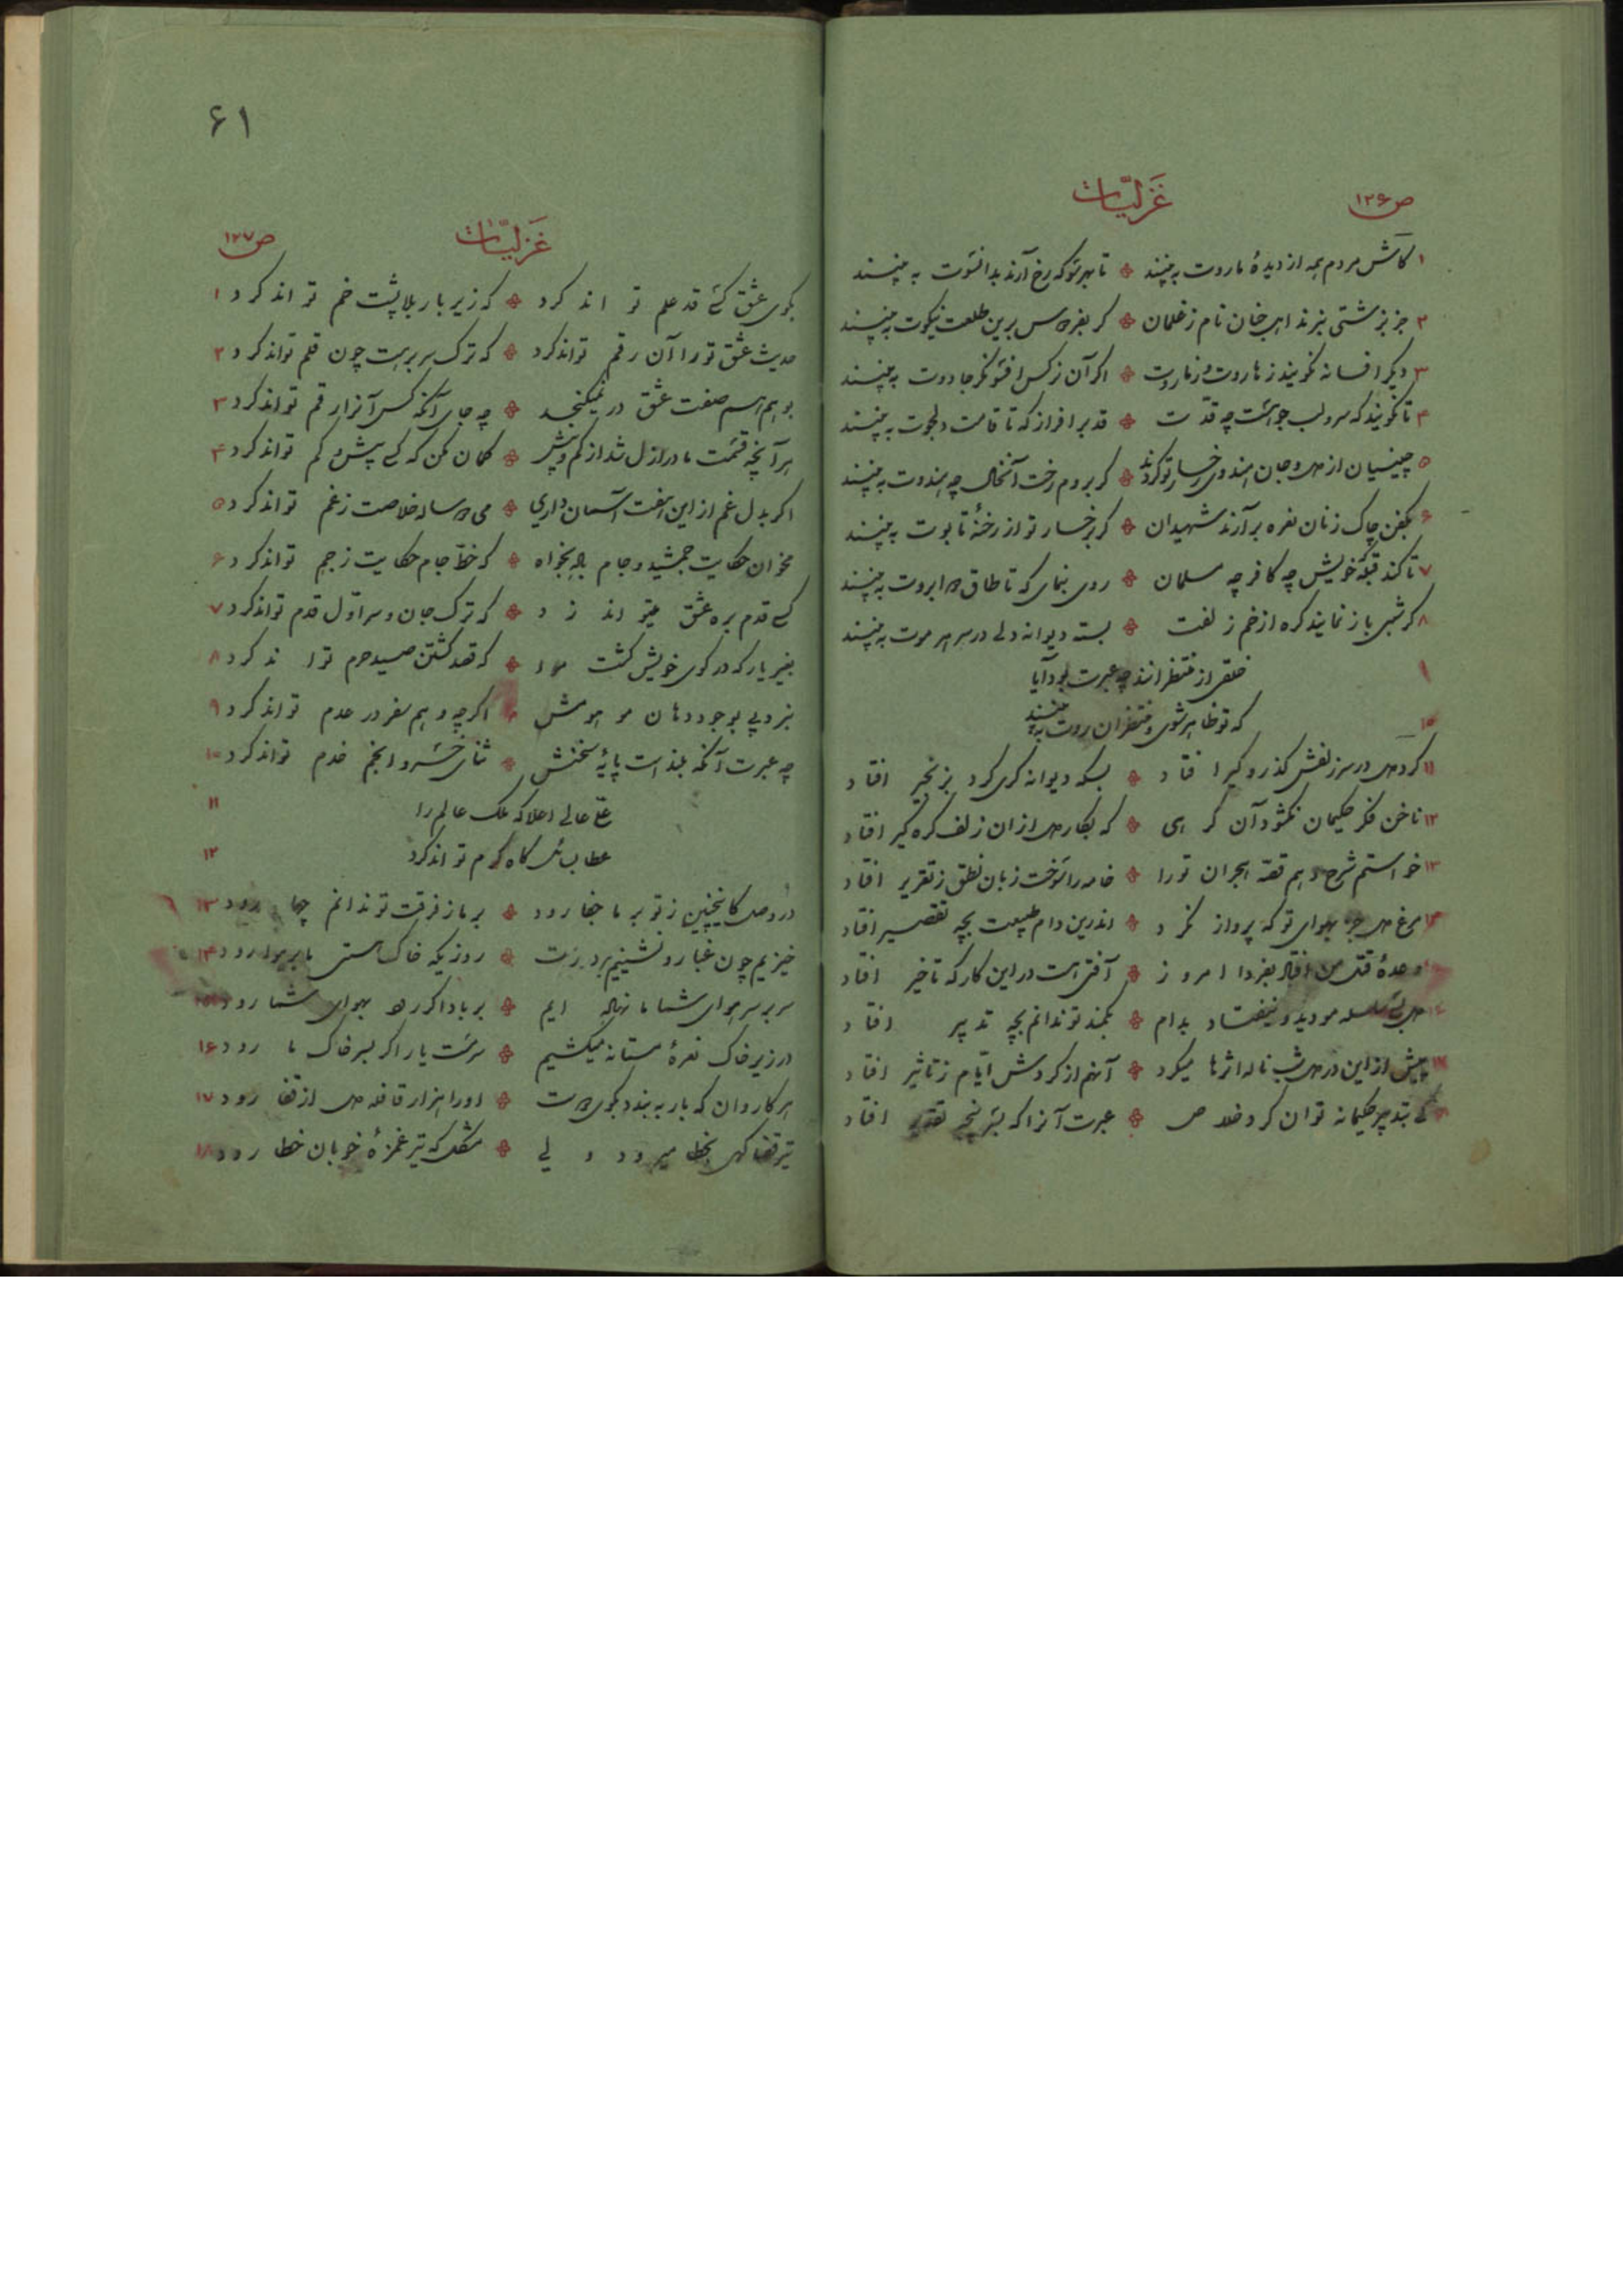 ص ۱۲۶
غزلیات
۱ کاش مردم همه از دیده ما روت به بینند ❊ تا بهر سو که رخ آرند بدانسوت به بینند
۲ جز بزشتی نبرند اهل جنان نام ز غلمان ❊ گر بفردوس برین طلعت نیکوت به بینند
۳ دیگر افسانه نگویند ز هاروت و ز ماروت ❊ اگر آن نرگس افسونگر جادوت به بینند
۴ تا نگویند که سرو لب جو است چه قدت ❊ قد برافراز که تا قامت دلجوت به بینند
۵ چینیان از دل و جان هندوی رخسار تو گردند ❊ گر بروم رخت آنخال چه هندوت به بینند
۶ بکفن چاک زنان نعره برآرند شهیدان ❊ گر رخسار تو از رخنهٔ تابوت به بینند
۷ تا کند قبله خویش چه کافر چه مسلمان ❊ روی بنمای که تا طاق دو ابروت به بینند
۸ گر شبی باز نمایند گره از خم زلفت ❊ بسته دیوانه دلی در سر هر موت به بینند
۹ خلقی از منتظرانند چه عبرت بود آیا
۱۰ که تو ظاهر شوی و منتظران روت به بینند
۱۱ کرد دل در سر زلفش گذر و گیر افتاد ❊ بسکه دیوانه گری کرد بزنجیر افتاد
۱۲ ناخن فکر حکیمان نگشود آن گرهی ❊ که بکار دل از ان زلف گره گیر افتاد
۱۳ خواستم شرح دهم قصه هجران تو را ❊ خامه را سوخت زبان نطق ز تقریر افتاد
۱۴ مرغ دل جز بهوای تو که پرواز نکرد ❊ اندرین دام طبیعت بچه تقصیر افتاد
وعدهٔ قتل من افتاد بفردا امروز ❊ آفتی است در این کار که تاخیر افتاد
دل سلسله مو دید و نیفتاد بدام ❊ بکمند تو ندانم بچه تدبیر افتاد
۱۷ پیش از این در دل شب ناله اثرها میکرد ❊ آنهم از گردش ایام ز تاثیر افتاد
کی بتدبیر حکیمانه توان کرد خلاص ❊ عبرت آنرا که بسرپنجه تقدیر افتاد
۶۱
غزلیات
ص ۱۲۷
بکوی عشق کسی قد علم تواند کرد ❊ که زیر بار بلا پشت خم تواند کرد ۱
حدیث عشق تو را آن رقم تواند کرد ❊ که ترک سر بریت چون قلم تواند کرد ۲
بوهم اسم صفت عشق در نمیگنجد ❊ چه جای آنکه کس آنرا رقم تواند کرد ۳
هر آنچه قسمت ما در ازل شد از کم و بیش ❊ گمان مکن که کسی بیش و کم تواند کرد ۴
اگر بدل غم از این هفت آسمان داری ❊ می دو ساله خلاصت ز غم تواند کرد ۵
مخوان حکایت جمشید و جام باده بخواه ❊ که خط جام حکایت ز جم تواند کرد ۶
کسی قدم بره عشق میتواند زد ❊ که ترک جان و سر اول قدم تواند کرد ۷
بغیر یار که در کوی خویش کشت مرا ❊ که قصد کشتن صید حرم تواند کرد ۸
نبرد پی بوجود دهان مو هومش ❊ اگر چه وهم سفر در عدم تواند کرد ۹
چه عبرت آنکه بلند است پایهٔ سخنش ❊ ثنای خسرو انجم خدم تواند کرد ۱۰
علی عالی اعلا که ملک عالم را ۱۱
عطا ب گاه کرم تواند کرد ۱۲
در وصل کاینچنین ز تو بر ما جفا رود ❊ بر ما ز فرقت تو ندانم چها رود ۱۳
خیزیم چون غبار و نشینیم بر درت ❊ روزیکه خاک هستی ما بر هوا رود ۱۴
سر بر سر هوای شما ما نهاده ایم ❊ بر باد اگر رود بهوای شما رود ۱۵
در زیر خاک نعرهٔ مستانه میکشیم ❊ سرمست یار اگر بسر خاک ما رود ۱۶
هر کاروان که بار ببندد بکوی دوست ❊ او را هزار قافله دل از قفا رود ۱۷
تیر قضا گهی بخطا میرود ولی ❊ مشکل که تیر غمزهٔ خوبان خطا رود ۱۸